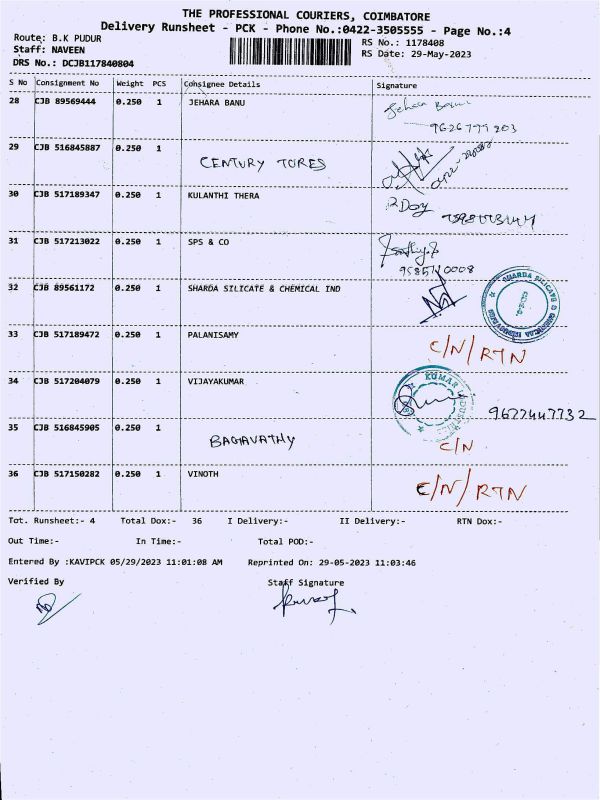 THE PROFESSIONAL COURIERS, COIMBATORE
Delivery Runsheet - PCK - Phone No.:0422-3505555 - Page No.:4
Route: B.K PUDUR
RS No.: 1178408
Staff: NAVEEN
RS Date: 29-May-2023
DRS No.: DCJB117840804
S No Consignment No Weight PCS Consignee Details Signature
28 CJB 89569444 0.250 1 JEHARA BANU Jehara Banu
9626777203
29 CJB 516845887 0.250 1
CENTURY TORES
30 CJB 517189347 0.250 1 KULANTHI THERA
31 CJB 517213022 0.250 1 SPS & CO
32 CJB 89561172 0.250 1 SHARDA SILICATE & CHEMICAL IND
33 CJB 517189472 0.250 1 PALANISAMY
C/N/RTN
34 CJB 517204079 0.250 1 VIJAYAKUMAR
KUMAR INDUSTRIES
9677447732
35 CJB 516845905 0.250 1
BAGAVATHY
C/N
36 CJB 517150282 0.250 1 VINOTH
C/N/RTN
Tot. Runsheet:- 4 Total Dox:- 36 I Delivery:- II Delivery:- RTN Dox:-
Out Time:- In Time:- Total POD:-
Entered By :KAVIPCK 05/29/2023 11:01:08 AM Reprinted On: 29-05-2023 11:03:46
Verified By Staff Signature